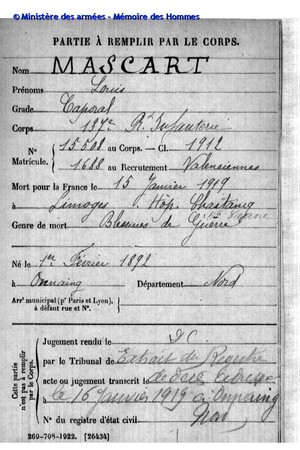 © Ministère des armées - Mémoire des Hommes
PARTIE À REMPLIR PAR LE CORPS.
Nom MASCART
Prénoms Louis
Grade Caporal
Corps 137e Rt d'Infanterie
N° 15508 au Corps. — Cl. 1912
Matricule. 1688 au Recrutement Valenciennes
Mort pour la France le 15 Janvier 1919
à Limoges Hop. Chastaing
Hte Vienne
Genre de mort Blessures de Guerre
Né le 1er Février 1892
à Onnaing Département Nord
Arrt municipal (pr Paris et Lyon),
à défaut rue et N°.
Cette partie
n'est pas à remplir
par le Corps.
Jugement rendu le D.C.
par le Tribunal de Extrait du Registre
acte ou jugement transcrit le de décès
à le 16 Janvier 1919 à Onnaing
N° du registre d'état civil Nord
269-708-1922. [26434]